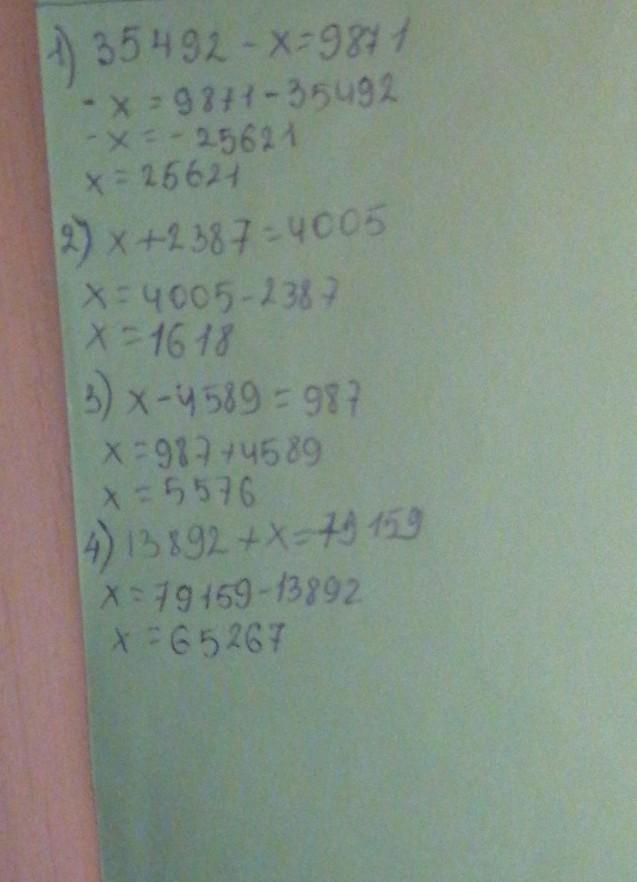 1) 35492 - x = 9871
- x = 9871 - 35492
- x = - 25621
x = 25621
2) x + 2387 = 4005
x = 4005 - 2387
x = 1618
3) x - 4589 = 987
x = 987 + 4589
x = 5576
4) 13892 + x = 79159
x = 79159 - 13892
x = 65267